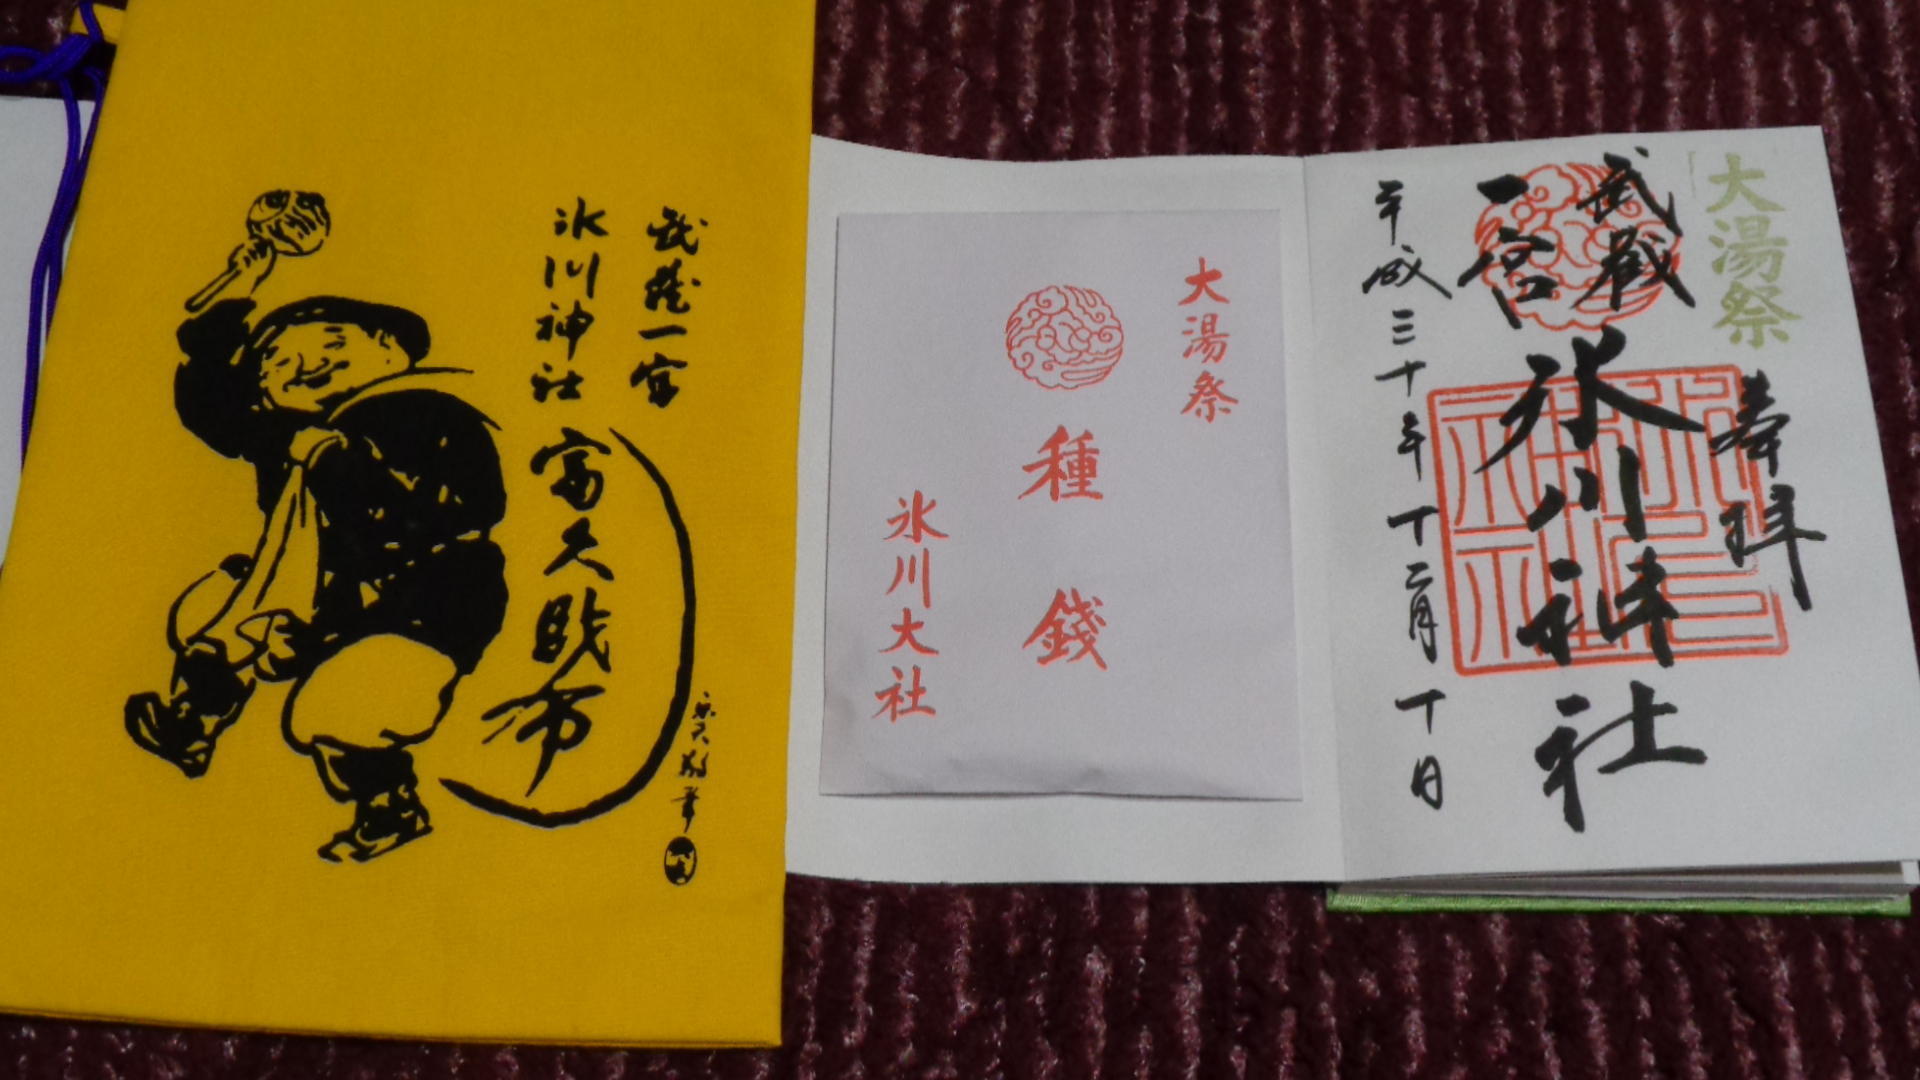 武蔵一宮
氷川神社
富久財布
大湯祭
種錢
氷川大社
大湯祭
奉拜
武蔵
一宮
氷川神社
平成三十年十二月十日